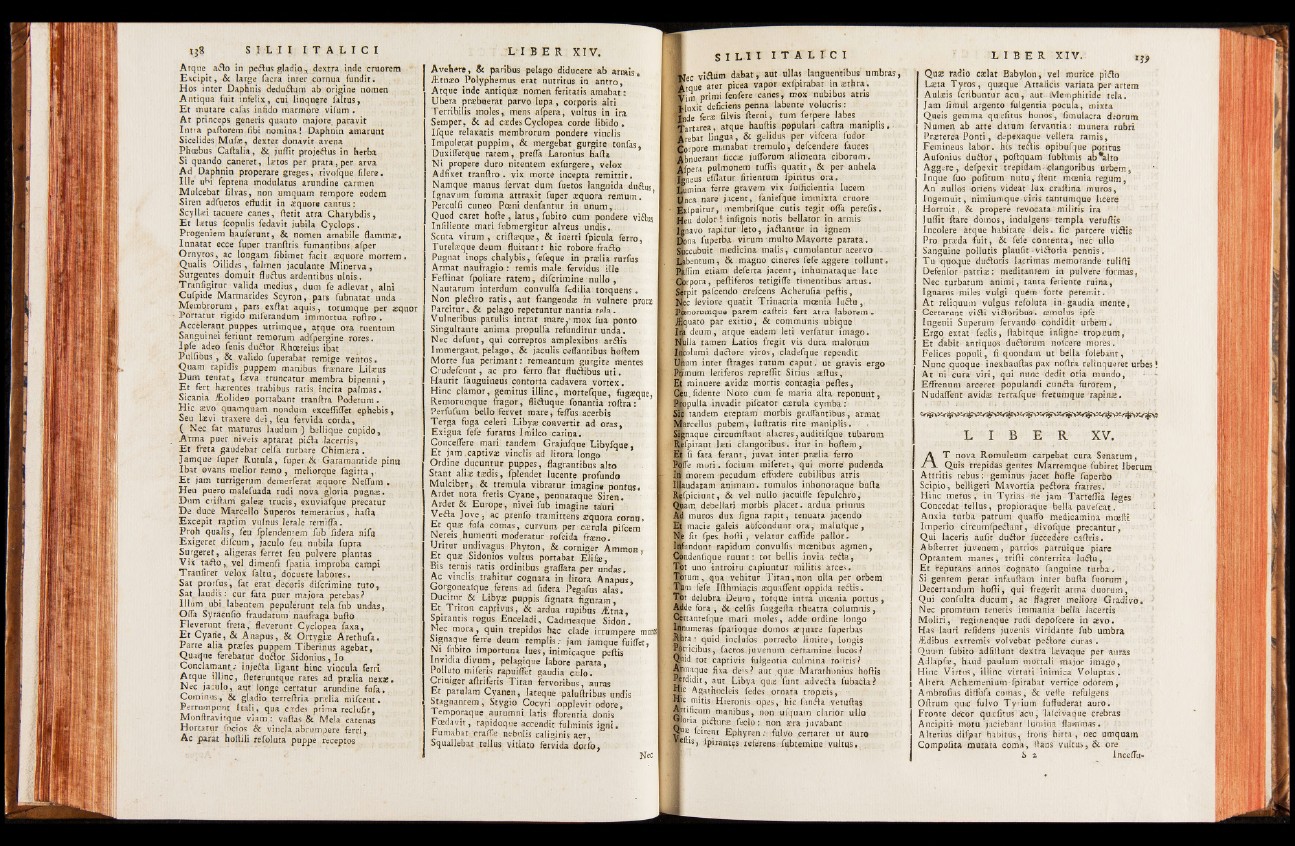 138 SILII ITALICI
Atque acto in pectus gladio, dextra inde cruorem
Excipit, & large sacra inter cornua fundit.
Hos inter Daphnis deductum ab origine nomen
Antiqua fuit infelix, cui linquere saltus,
Et mutare casas infido marmore visum.
At princeps generis quanto majora paravit
Intra pastorem sibi nomina! Daphnin amarunt
Sicelides Musæ, dexter donavit avena
Phœbus Castalia, & jussit projectus in herba
Si quando caneret, lætos per prata, per arva
Ad Daphnin properare greges, rivosque silere.
Ille ubi septena modulatus arundine carmen
Mulcebat silvas, non umquam tempore eodem
Siren adsuetos effudit in æquore cantus:
Scyllæi tacuere canes, stetit atra Charybdis,
Et lætus scopulis sedavit jubila Cyclops.
Progeniem hauserunt, & nomen amabile flammæ.
Innatat ecce super transtris fumantibus asper
Ornytos, ac longam sibimet facit æquore mortem.
Qualis Oilides, fulmen jaculante Minerva,
Surgentes domuit fluctus ardentibus ulnis.
Transfigitur valida medius, dum se adlevat, alni
Cuspide Marmarides Scyron, pars subnatat unda
Membrorum, pars exstat aquis, totumque per æquor
Portatur rigido miserandum immortua rostro.
Accelerant puppes utrimque, atque ora ruentum
Sanguinei feriunt remorum adspergine rores.
Ipse adeo senis ductor Rhœteius ibat
Pulsibus, & valido superabat remige ventos.
Quam rapidis puppem manibus frænare Lilæus
Dum tentat, sæva truncatur membra bipenni,
Et fert hærentes trabibus ratis incita palmas.
Sicania Æolideo portabant transtra Podetum.
Hic ævo quamquam nondum excessisset ephebis,
Seu lævi traxere dei, seu fervida corda,
( Nec sat maturus laudum ) bellique cupido,
Arma puer niveis aptarat picta lacertis,
Et freta gaudebat celsa turbare Chimæra.
Jamque super Rutula, super & Garamantide pinu
Ibat ovans melior remo, meliorque sagitta,
Et jam turrigerum demerserat æquore Nessum.
Heu puero malesuada rudi nova gloria pugnæ.
Dum cristam galeæ trucis, exuviasque precatur
De duce Marcello Superos temerarius, hasta
Excepit raptim vulnus letale remissa.
Proh qualis, seu splendentem sub sidera nisu
Exigeret discum, jaculo seu nubila supra
Surgeret, aligeras ferret seu pulvere plantas
Vix tacto, vel dimensi spatia improba campi
Transiret velox saltu, docuere labores.
Sat prorsus, sat erat decoris discrimine tuto,
Sat laudis: cur facta puer majora petebas?
Illum ubi labentem pepulerunt tela sub undas,
Ossa Syracosio fraudatum naufraga busto
Fleverunt freta, fleverunt Cyclopea saxa,
Et Cyane, & Anapus, & Ortygiæ Arethusa.
Parte alia præses puppem Tiberinus agebat,
Quaque ferebatur ductor Sidonius, Io
Conclamant; injecta ligant hinc vincula ferri
Atque illinc, steteruntque rates ad prælia nexæ.
Nec jaculo, aut longe certatur arundine fusa.
Cominus, & gladio terrestria prælia miscent.
Perrumpunt Itali, qua cædes prima reclusit,
Monstravitque viam: vastas & Mela catenas
Hortatur socios & vincla abrumpere ferri,
Ac parat hostili resoluta puppe receptos
LIBER XIV.
Avehere, & paribus pelago diducere ab armis.
Ætnæo Polyphemus erat nutritus in antro,
Atque inde antiquæ nomen feritatis amabat:
Ubera præbuerat parvo lupa, corporis alti
Terribilis moles, mens aspera, vultus in ira
Semper, & ad cædes Cyclopea corde libido.
Isque relaxatis membrorum pondere vinclis
Impulerat puppim, & mergebat gurgite tonsas,
Duxissetque ratem, pressa Laronius hasta
Ni propere duro nitentem exsurgere, velox
Adfixet transtro. vix morte incepta remittit.
Namque manus servat dum suetos languida ductus,
Ignavum summa attraxit super æquora remum.
Perculsi cuneo Pœni densantur in unum,
Quod caret hoste, latus, subito cum pondere victus
Insiliente mari submergitur alveus undis.
Scuta virum, cristæque, & inerti spicula ferro,
Tutelæque deum fluitant: hic robore fracto
Pugnat inops chalybis, seseque in prælia rursus
Armat naufragio: remis male fervidus ille
Festinat spoliare ratem, discrimine nullo,
Nautarum interdum convulsa sedilia torquens.
Non plectro ratis, aut frangendæ in vulnere proræ
Parcitur. & pelago repetuntur nantia tela.
Vulneribus patulis intrat mare, mox sua ponto
Singultante anima propulsa refunditur unda.
Nec desunt, qui correptos amplexibus arctis
Immergant pelago, & jaculis cessantibus hostem
Morte sua perimant: remeantum gurgite mentes
Crudescunt, ac pro ferro stat fluctibus uti.
Haurit sanguineus contorta cadavera vortex.
Hinc clamor, gemitus illinc, mortesque, fugæque,
Remorumque fragor, flictuque sonantia rostra:
Perfusum bello fervet mare, fessus acerbis
Terga fuga celeri Libyæ convertit ad oras,
Exigua sese furatus Imilco carina.
Concessere mari tandem Grajusque Libysque,
Et jam captivæ vinclis ad litora longo
Ordine ducuntur puppes, flagrantibus alto
Stant aliæ tædis, splendet lucente profundo
Mulciber, & tremula vibratur imagine pontus.
Ardet nota fretis Cyane, pennataque Siren.
Ardet & Europe, nivei sub imagine tauri
Vecta Jove, ac prenso tramittens æquora cornu.
Et quæ fusa comas, curvum per cærula piscem
Nereis humenti moderatur roscida fræno.
Uritur undivagus Phyton, & corniger Ammon,
Et quæ Sidonios vultus portabat Elisæ,
Bis ternis ratis ordinibus grassata per undas.
Ac vinclis trahitur cognata in litora Anapus,
Gorgoneasque ferens ad sidera Pegasus alas.
Ducitur & Libyæ puppis signata figuram,
Et Triton captivus, & ardua rupibus Ætna,
Spirantis rogus Enceladi, Cadmeaque Sidon.
Nec mora, quin trepidos hac clade irrumpere
Signaque ferre deum templis: jam jamque fuisset,
Ni subito importuna lues, inimicaque pestis
Invidia divum, pelagique labore parata,
Polluto miseris rapuisset gaudia cælo.
Criniger æstiferis Titan fervoribus, auras
Et patulam Cyanen, lateque palustribus undis
Stagnantem, Stygio Cocyti opplevit odore,
Temporaque autumni latis florentia donis
Fœdavit, rapidoque accendit fulminis igni.
Fumabat crassis nebulis caliginis aer,
Squallebat tellus vitiato fervida dorso,
Nec
SILII ITALICI
Nec victum dabat, aut ullas languentibus umbras,
Atque ater picea vapor exspirabat in æthra.
Vim primi sensere canes, mox nubibus atris
Fluxit deficiens penna labente volucris:
Inde feræ silvis sterni, tum serpere labes
Tartarea, atque haustis populari castra maniplis.
Arebat lingua, & gelidus per viscera sudor
Corpore manabat tremulo, descendere fauces
Abnuerant siccæ jussorum alimenta ciborum.
Aspera pulmonem tussis quatit, & per anhela
Igneus efflatur sitientum spiritus ora.
Lumina ferre gravem vix sufficientia lucem
Unca nare jacent, saniesque immixta cruore
Exspuitur, membrisque cutis tegit ossa peresis.
Heu dolor! insignis notis bellator in armis
Ignavo rapitur leto, jactantur in ignem
Dona superba virum multo Mavorte parata.
Succubuit medicina malis, cumulantur acervo
Labentum, & magno cineres sese aggere tollunt.
Passim etiam deserta jacent, inhumataque late
Corpora, pestiferos tetigisse timentibus artus.
Serpit pascendo crescens Acherusia pestis,
Nec leviore quatit Trinacria mœnia luctu,
Pœnorumque parem castris fert atra laborem.
Æquato par exitio, & communis ubique
Ira deum, atque eadem leti versatur imago.
Nulla tamen Latios fregit vis dura malorum
Incolumi ductore viros, cladesque rependit
Unum inter strages tutum caput. ut gravis ergo
Primum letiferos repressit Sirius æstus,
Et minuere avidæ mortis contagia pestes,
Ceu, sidente Noto cum se maria alta reponunt,
Propulsa invadit piscator cærula cymba:
Sic tandem ereptam morbis grassantibus, armat
Marcellus pubem, lustratis rite maniplis.
Signaque circumstant alacres, auditisque tubarum
Respirant læti clangoribus. itur in hostem,
Et si fata ferant, juvat inter prælia ferro
Posse mori. socium miseret, qui morte pudenda
In morem pecudum effudere cubilibus atris
Illaudatam animam. tumulos inhonoraque busta
Respiciunt, & vel nullo jacuisse sepulchro,
Quam debellari morbis placet. ardua primus
Ad muros dux signa rapit, tenuata jacendo
Et macie galeis abscondunt ora, malusque,
Ne sit spes hosti, velatur casside pallor.
Infundunt rapidum convulsis mœnibus agmen,
Condensique ruunt: tot bellis invia tecta,
Tot uno introitu capiuntur militis arces.
Totum, qua vehitur Titan, non ulla per orbem
Tum sese Isthmiacis æquassent oppida tectis.
Tot delubra Deum, totque intra mœnia portus,
Adde fora, & celsis suggesta theatra columnis,
Certantesque mari moles, adde ordine longo
Innumeras spatioque domos æquare superbas
Rura: quid inclusos porrecto limite, longis
Porticibus, sacros juvenum certamine lucos?
Quid tot captivis fulgentia culmina rostris?
Armaque fixa deis? aut quæ Marathonius hostis
Perdidit, aut Libya quæ sunt advecta subacta?
Hic Agathocleis sedes ornata tropæis,
Hic mitis Hieronis opes, hic sancta vetustas
Artificum manibus, non usquam clarior ullo
Gloria picturæ seclo: non æra juvabant
Quæ scirent Ephyren: fulvo certaret ut auro
Vestis, spirantes referens subtemine vultus,
LIBER XIV. 139
Quæ radio cælat Babylon, vel murice picto
Læta Tyros, quæque Attalicis variata per artem
Aulæis scribuntur acu, aut Memphitide tela.
Jam simul argento fulgentia pocula, mixta
Queis gemma quæsitus honos, simulacra deorum
Numen ab arte datum servantia: munera rubri
Præterea Ponti, depexaque vellera ramis,
Femineus labor. his tectis opibusque potitus
Ausonius ductor, postquam sublimis ab alto
Aggere, despexit trepidam clangoribus urbem,
Inque suo positum nutu, stent mœnia regum,
An nullos oriens videat lux crastina muros,
Ingemuit, nimiumque viris tantumque licere
Horruit, & propere revocata militis ira
Jussit stare domos, indulgens templa vetustis
Incolere atque habitare deis. sic parcere victis
Pro præda fuit, & sese contenta, nec ullo
Sanguine pollutis plausit victoria pennis.
Tu quoque ductoris lacrimas memorande tulisti
Defensor patriæ: meditantem in pulvere formas,
Nec turbatum animi, tanta feriente ruina,
Ignarus miles vulgi quem sorte peremit.
At reliquum vulgus resoluta in gaudia mente,
Certarunt victi victoribus. æmulus ipse
Ingenii Superum servando condidit urbem.
Ergo extat seclis, stabitque insigne tropæum,
Et dabit antiquos ductorum noscere mores.
Felices populi, si quondam ut bella solebant,
Nunc quoque inexhaustas pax nostra relinqueret urbes!
At ni cura viri, qui nunc dedit otia mundo,
Effrenum arceret populandi cuncta furorem,
Nudassent avidæ terrasque fretumque rapinæ.
LIBER XV.
AT nova Romuleum carpebat cura Senatum,
Quis trepidas gentes Martemque subiret Iberum
Attritis rebus: geminus jacet hoste superbo
Scipio, belligeri Mavortia pectora fratres.
Hinc metus, in Tyrias ne jam Tartessia leges
Concedat tellus, propioraque bella pavescat.
Anxia turba patrum quasso medicamina mœsti
Imperio circumspectant, divosque precantur,
Qui laceris ausit ductor succedere castris.
Absterret juvenem, patrios patruique piare
Optantem manes, tristi conterrita luctu,
Et reputans annos cognato sanguine turba.
Si gentem petat infaustam inter busta suorum,
Decertandum hosti, qui fregerit arma duorum,
Qui consulta ducum, ac flagret meliore Gradivo.
Nec promtum teneris immania bella lacertis
Moliri, regimenque rudi deposcere in ævo.
Has lauri residens juvenis viridante sub umbra
Ædibus extremis volvebat pectore curas.
Quum subito adsistunt dextra lævaque per auras
Adlapsæ, haud paulum mortali major imago,
Hinc Virtus, illinc virtuti inimica Voluptas.
Altera Achæmenium spirabat vertice odorem,
Ambrosias diffusa comas, & veste refulgens
Ostrum qua fulvo Tyrium suffuderat auro.
Fronte decor quæsitus acu, lascivaque crebras
Ancipiti motu jaciebant lumina flammas.
Alterius dispar habitus, frons hirta, nec umquam
Composita mutata coma, stans vultus, & ore
S 2 Incessu-